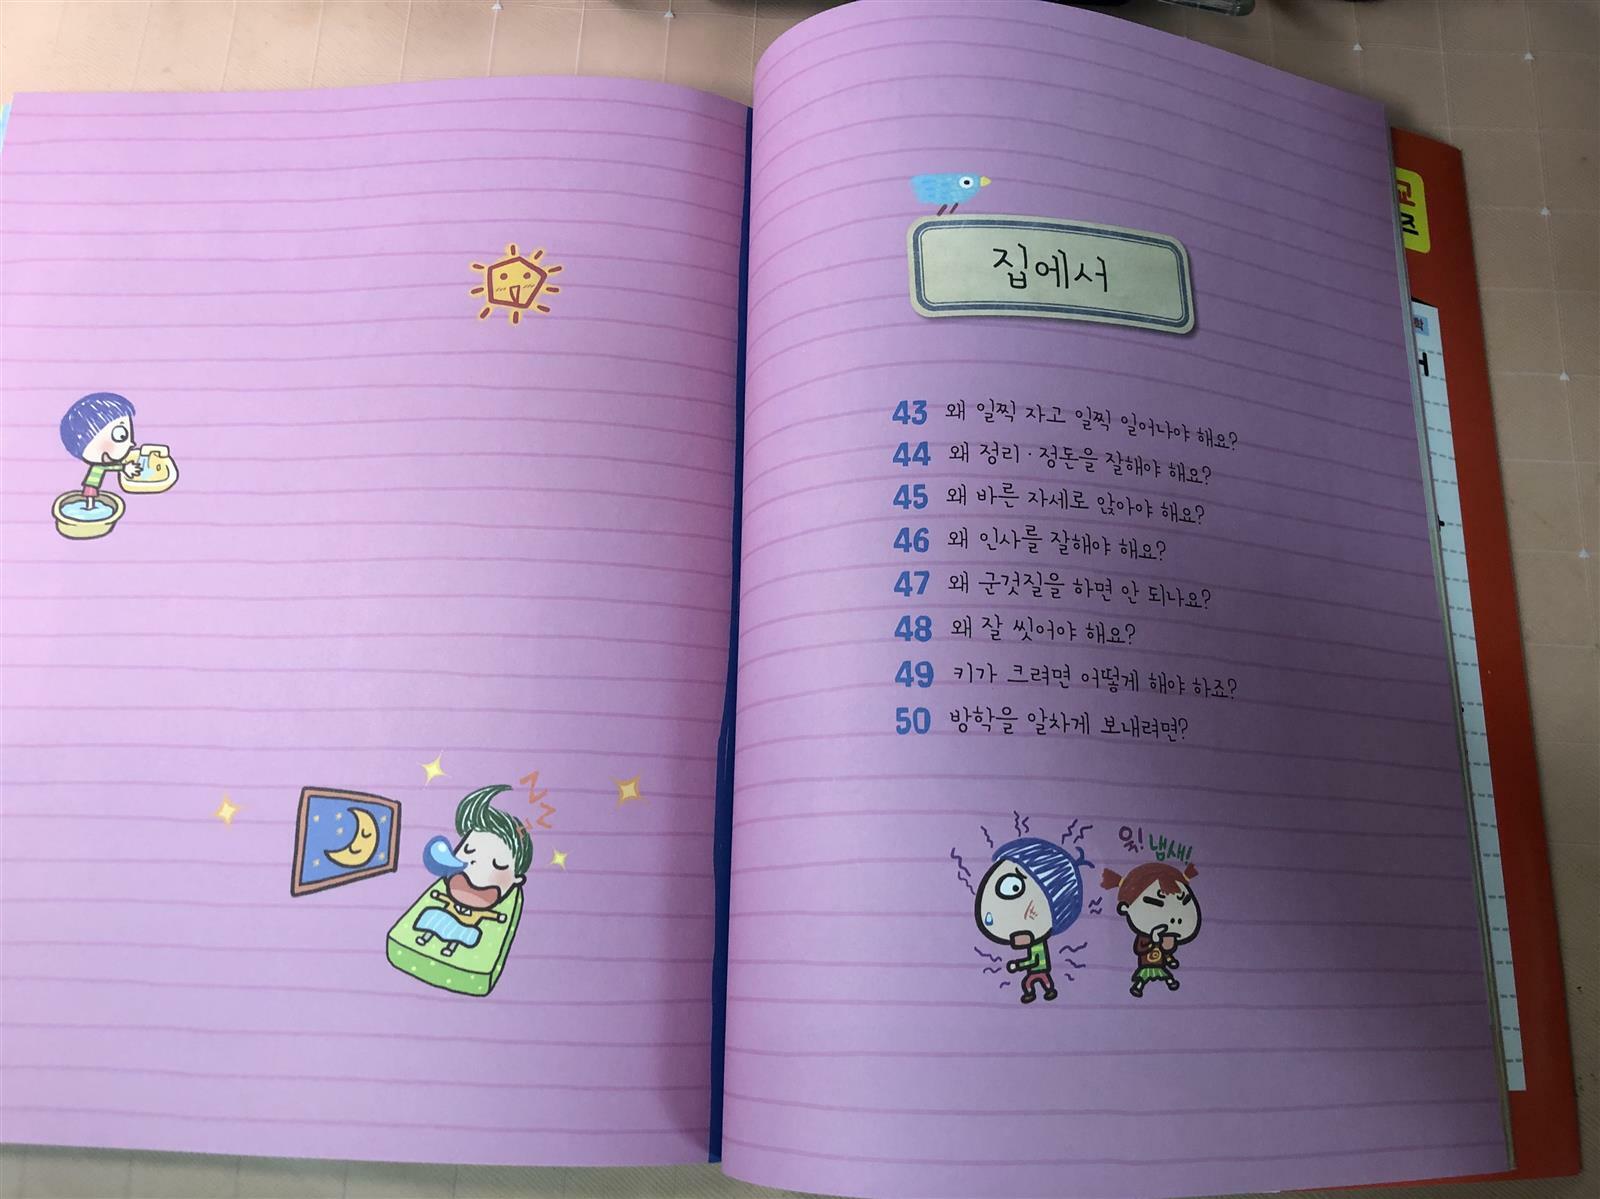 집에서
43 왜 일찍 자고 일찍 일어나야 해요?
44 왜 정리·정돈을 잘해야 해요?
45 왜 바른 자세로 앉아야 해요?
46 왜 인사를 잘해야 해요?
47 왜 군것질을 하면 안 되나요?
48 왜 잘 씻어야 해요?
49 키가 크려면 어떻게 해야 하죠?
50 방학을 알차게 보내려면?
읽! 냄새!
교
즈
학